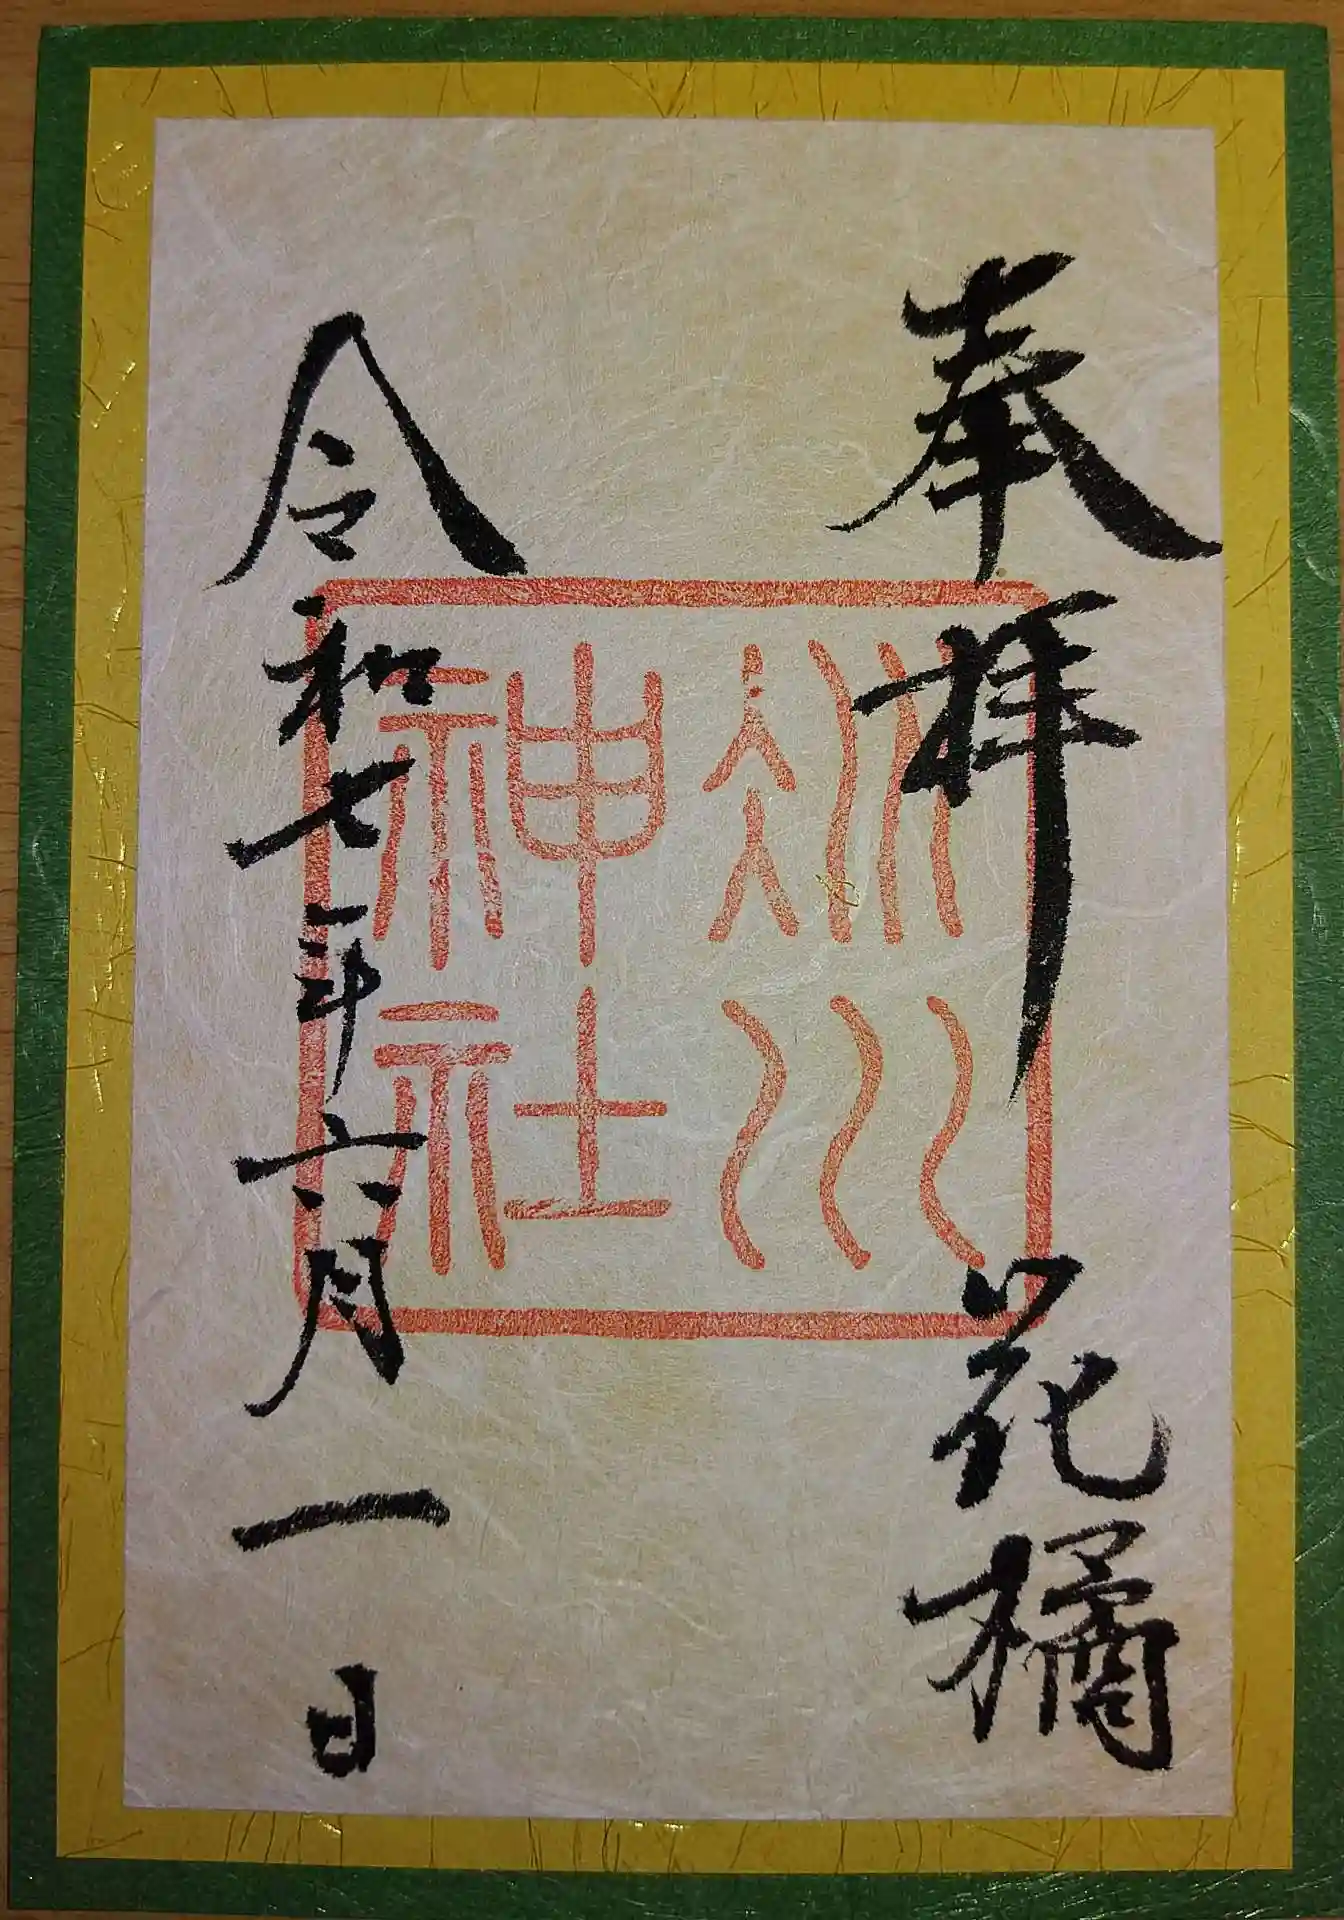 奉拝
花橘
氷川
神社
令和七年六月一日